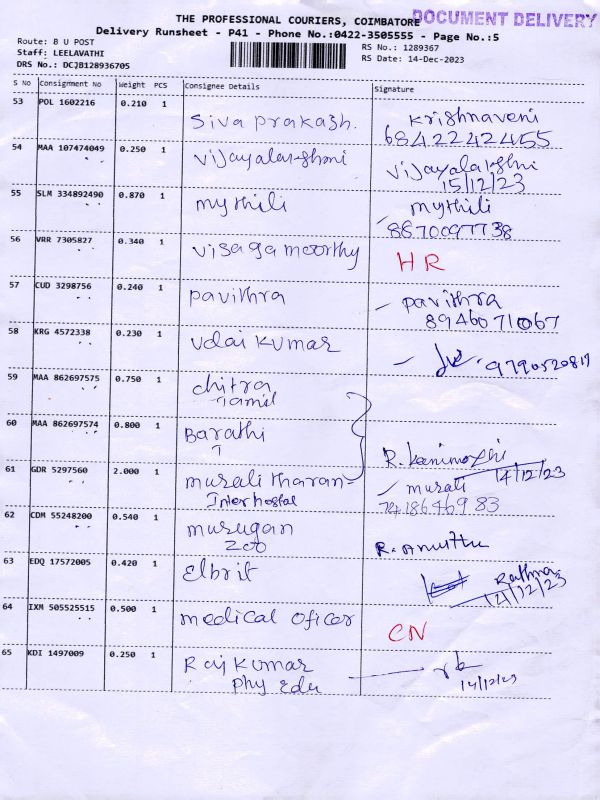 THE PROFESSIONAL COURIERS, COIMBATORE
DOCUMENT DELIVERY
Delivery Runsheet - P41 - Phone No.:0422-3505555 - Page No.:5
Route: B U POST
Staff: LEELAVATHI
DRS No.: DCJB128936705
RS No.: 1289367
RS Date: 14-Dec-2023
S No Consignment No Weight PCS Consignee Details Signature
53 POL 1602216 0.210 1 Siva Prakash. Krishnaveni
6842242455
54 MAA 107474049 0.250 1 Vijayalakshmi Vijayalakshmi
15/12/23
55 SLM 334892490 0.870 1 mythili mythili
8870097738
56 VRR 7305827 0.340 1 Visagamoorthy HR
57 CUD 3298756 0.240 1 pavithra pavithra
8946071067
58 KRG 4572338 0.230 1 Udai Kumar 9790520817
59 MAA 862697575 0.750 1 chitra
Tamil
60 MAA 862697574 0.800 1 Barathi
T
R. Kanimozhi
14/12/23
61 GDR 5297560 2.000 1 muralitharan murali
Inter hostal
62 CDM 55248200 0.540 1 murugan
Zoo
R. Amuthu
63 EDQ 17572005 0.420 1 Elbrit Rathna
14/12/23
64 IXM 505525515 0.500 1 medical oficer CN
65 KDI 1497009 0.250 1 Raj Kumar
Phy Edu
14/12/23